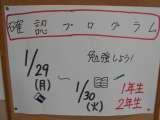 確認プログラム
勉強しよう!
1/29
(月)
〜
1/30
(火)
1年生
2年生